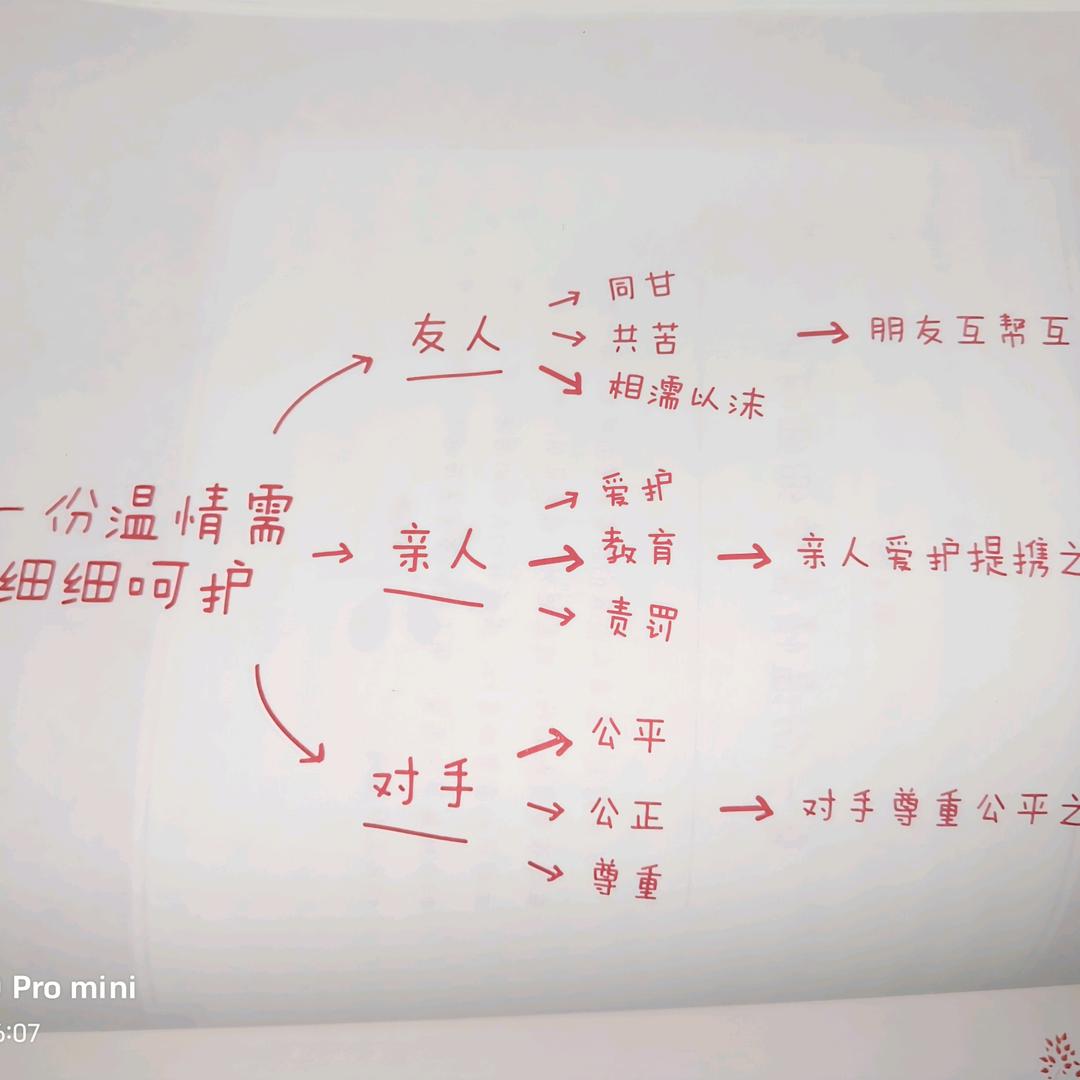 一份温情需
细细呵护
友人
同甘
共苦
相濡以沫
朋友互帮互
亲人
爱护
教育
责罚
亲人爱护提携之
对手
公平
公正
尊重
对手尊重公平之
Pro mini
6:07